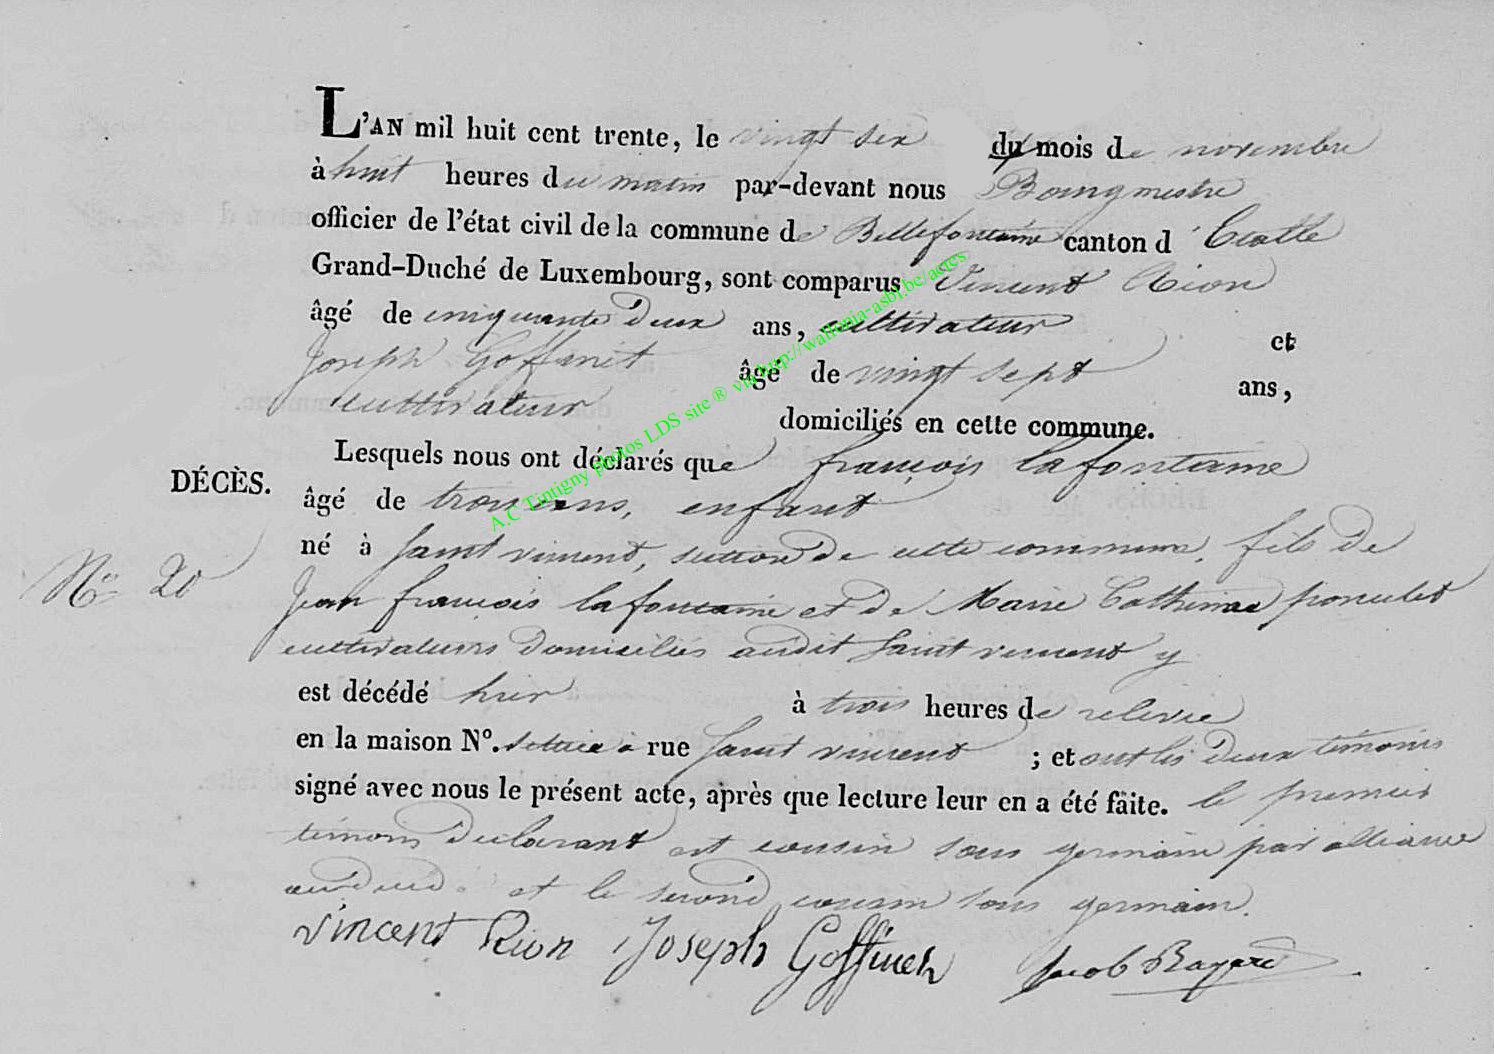 L'AN mil huit cent trente, le vingt six du mois de novembre
à huit heures du matin par-devant nous Bourgmestre
officier de l'état civil de la commune de Bellefontaine canton d'Etalle
Grand-Duché de Luxembourg, sont comparus Vincent Rion
âgé de cinquante deux ans, cultivateur et
Joseph Goffinet âgé de vingt sept ans,
cultivateur domiciliés en cette commune.
Lesquels nous ont déclarés que françois lafontaine
DÉCÈS. âgé de trois ans, enfant
né à Saint vincent, section de cette commune, fils de
N° 20 Jean françois lafontaine et de Marie Catherine poncelet
cultivateurs domiciliés audit Saint vincent y
est décédé hier à trois heures de relevée
en la maison N°. située à rue Saint vincent ; et ont les deux témoins
signé avec nous le présent acte, après que lecture leur en a été faite. le premier
témoin déclarant est cousin sous germain par alliance
et le second cousin sous germain.
Vincent Rion Joseph Goffinet Jacob Bayard
A.C Tintigny photos LDS site ® via http://wallonia-asbl.be/actes